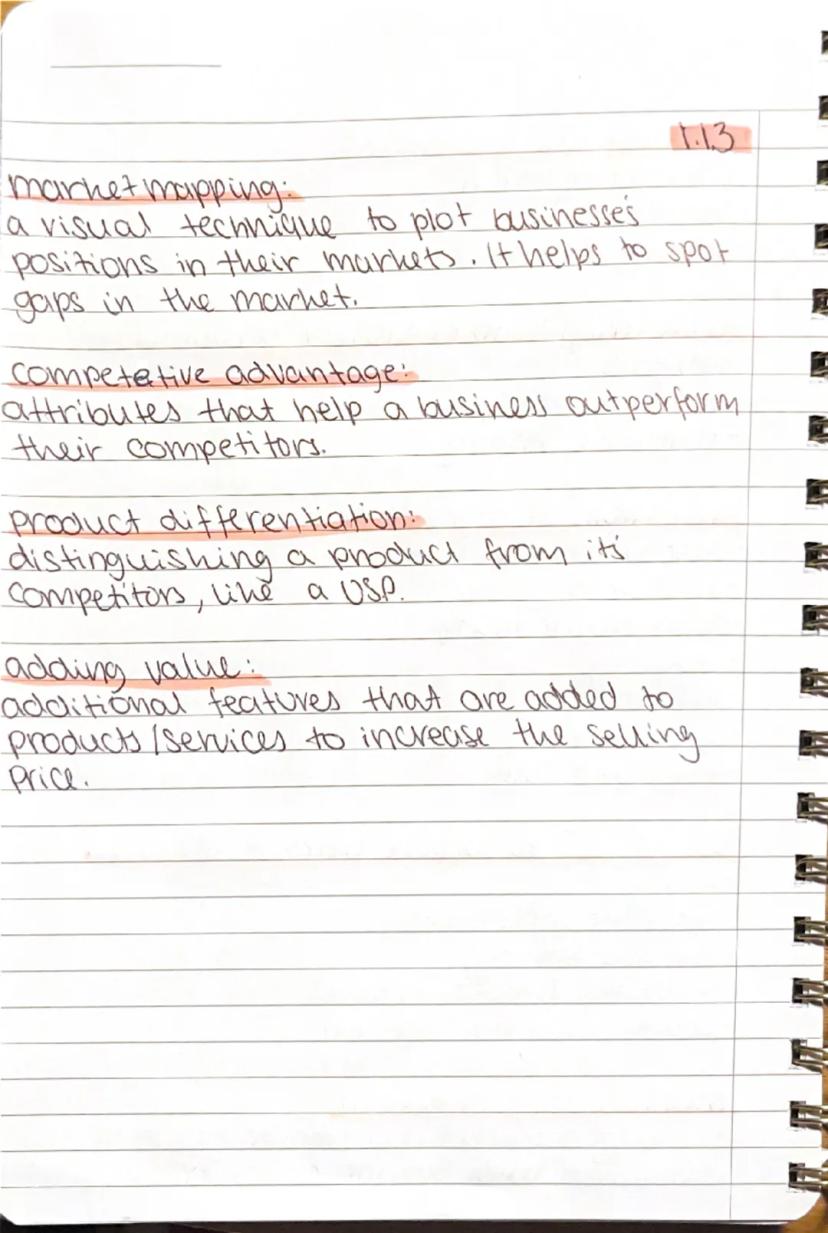 1.1.3
market mapping:
a visual technique to plot businesses'
positions in their markets. It helps to spot
gaps in the market.
competetive advantage:
attributes that help a business outperform
their competitors.
product differentiation:
distinguishing a product from its'
competitors, like a USP.
adding value:
additional features that are added to
products/services to increase the selling
price.